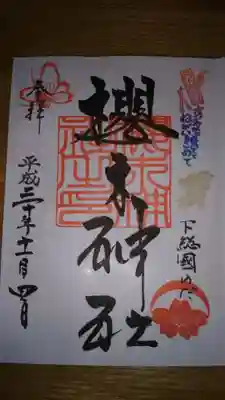 下総國のだ
櫻木神社
奉拝
平成三十年十一月四日